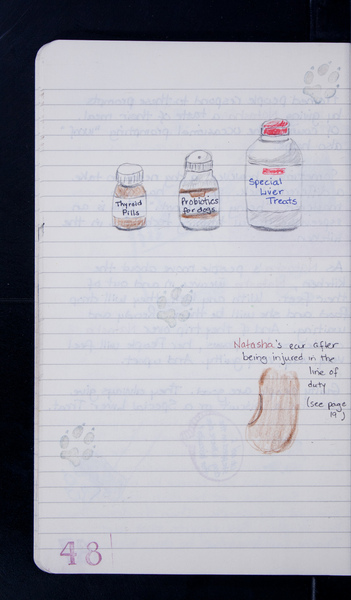 Thyroid
Pills
Probiotics
for dogs
Special
Liver
Treats
Natasha's ear after
being injured in the
line of
duty
(see page
19)
48